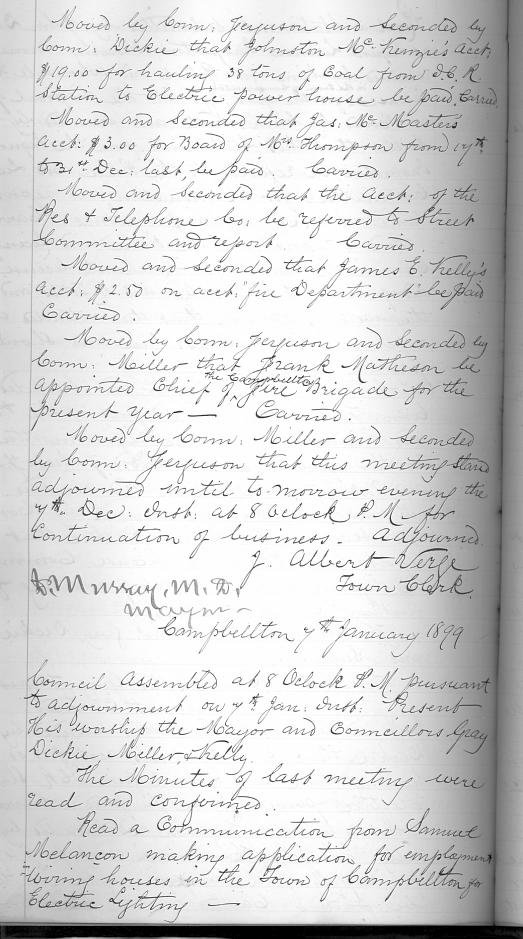 Moved by Coun: Ferguson and Seconded by
Coun: Dickie that Johnston McKenzie's Acct:
$19.00 for hauling 38 tons of Coal from I.C.R.
Station to Electric power house be paid. Carried.
Moved and Seconded that Jas: McMaster's
Acct: $3.00 for Board of Mrs. Thompson from 17th
to 31st Dec: last be paid. Carried.
Moved and Seconded that the Acct: of the
Res & Telephone Co: be referred to Street
Committee and report. Carried.
Moved and Seconded that James E. Kelly's
Acct: $2.50 on acct: "fire Department" be paid
Carried.
Moved by Coun: Ferguson and Seconded by
Coun: Miller that Frank Matheson be
appointed Chief of the Campbellton Fire Brigade for the
present year — Carried.
Moved by Coun: Miller and Seconded
by Coun: Ferguson that this meeting stand
adjourned until to-morrow evening the
7th Dec: Inst: at 8 Oclock P.M. for
Continuation of business. Adjourned.
J. Albert Verge
Town Clerk.
D. Murray, M.D.
Mayor
Campbellton 7th January 1899
Council Assembled at 8 Oclock P.M. pursuant
to adjournment on 7th Jan: Inst: Present
His worship the Mayor and Councillors Gray
Dickie, Miller, & Kelly.
The Minutes of last meeting were
read and confirmed.
Read a Communication from Samuel
Melancon making application for employment
wiring houses in the Town of Campbellton for
Electric Lighting —